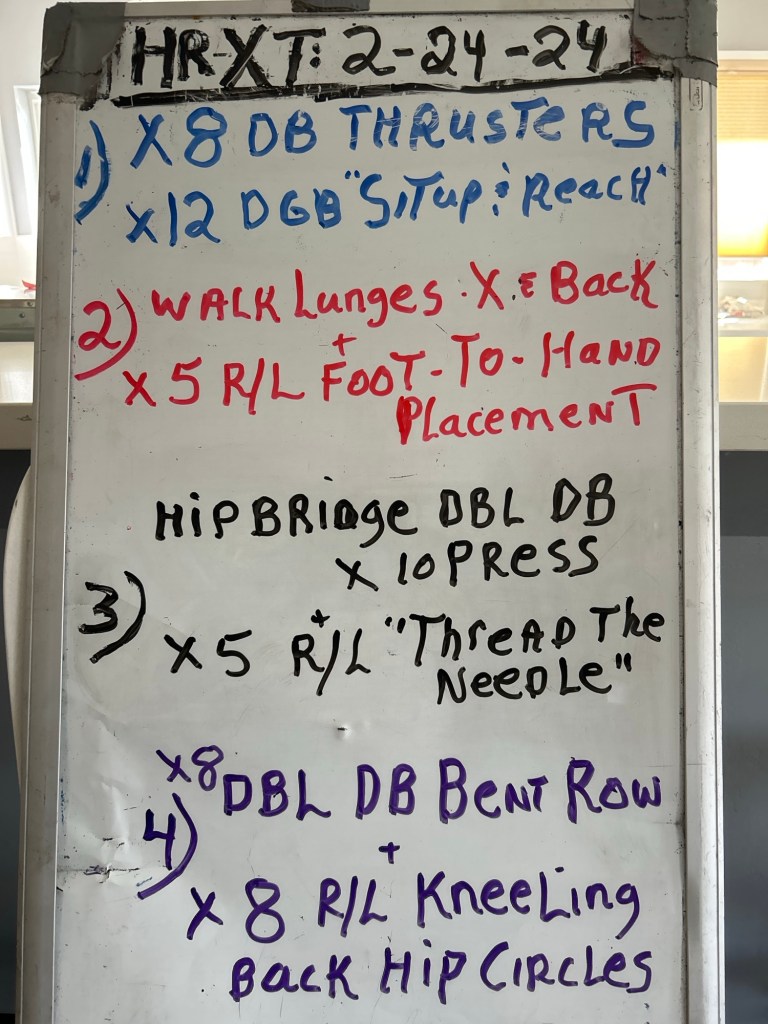 HR-XT: 2-24-24
1) X8 DB THRUSTERS
X12 DGB "SITUP & REACH"
2) WALK Lunges X & Back
+
X 5 R/L FOOT-TO-HAND
PLacemeNT
HiPBRidge DBL DB
X 10 PRess
3)
+
X 5 R/L "ThreAD The
NeeDLe"
X8 DBL DB BeNT Row
4)
+
X 8 R/L KneeLing
BacK Hip CiRcLes